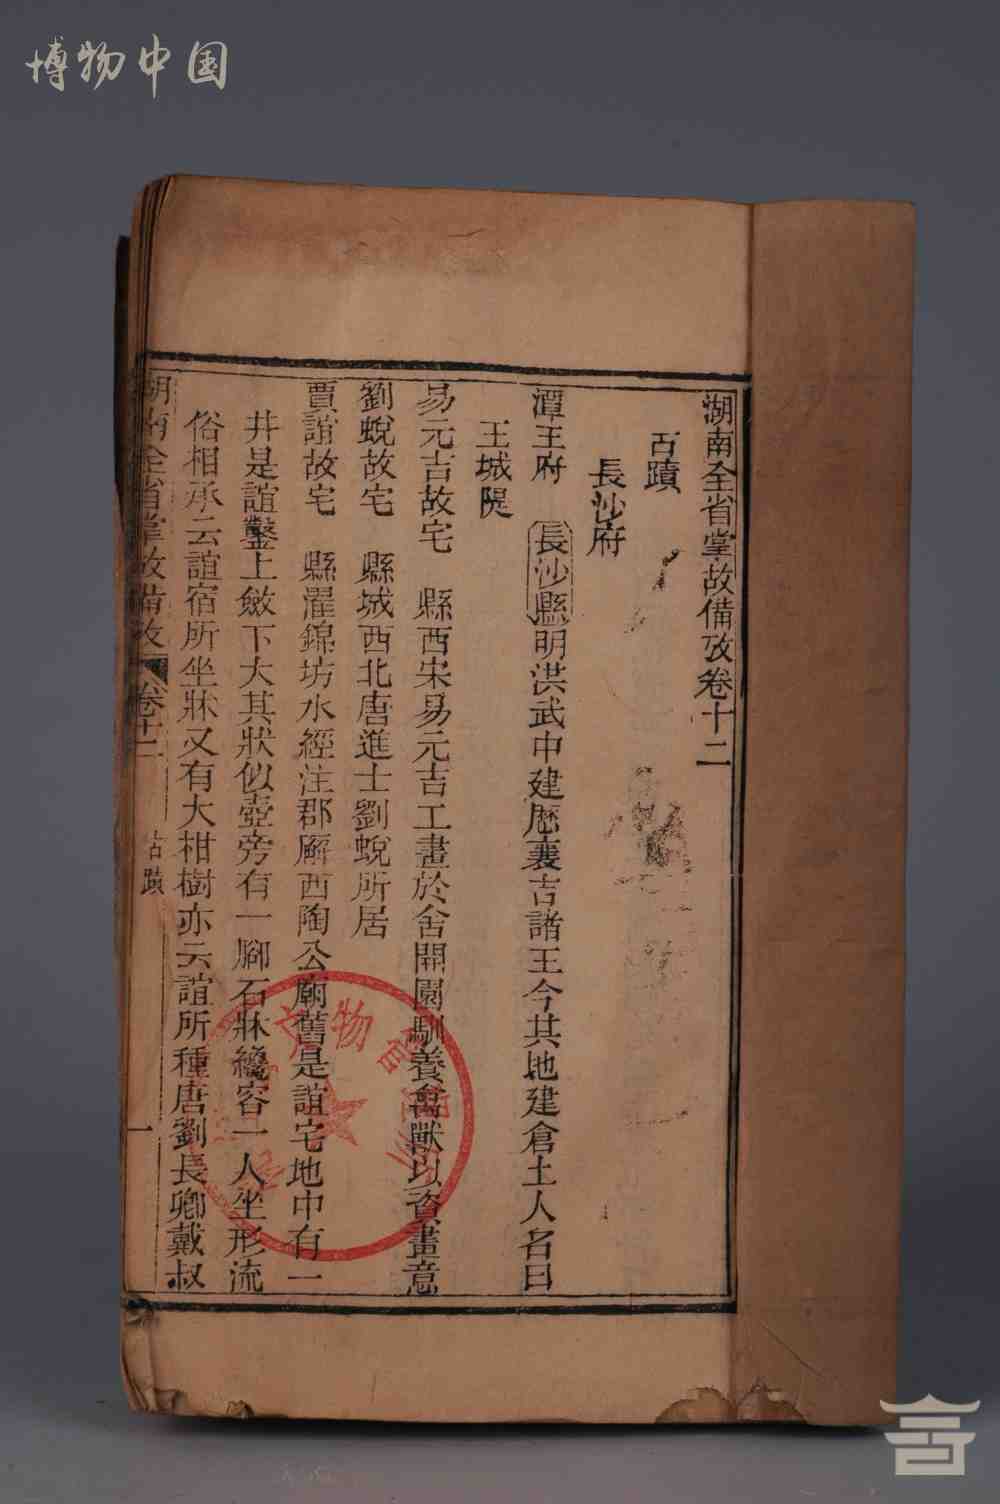 博物中国
湖南全省掌故備攷卷十二
古蹟
長沙府
潭王府　長沙縣明洪武中建歷襄吉諸王今其地建倉土人名曰
王城隄
易元吉故宅　縣西宋易元吉工畫於舍開園馴養禽獸以資畫意
劉蛻故宅　縣城西北唐進士劉蛻所居
賈誼故宅　縣濯錦坊水經注郡廨西陶公廟舊是誼宅地中有一
井是誼鑿上斂下大其狀似壺旁有一腳石牀纔容一人坐形流
俗相承云誼宿所坐牀又有大柑樹亦云誼所種唐劉長卿戴叔
湖南全省掌故備攷 卷十二 古蹟 一
文物